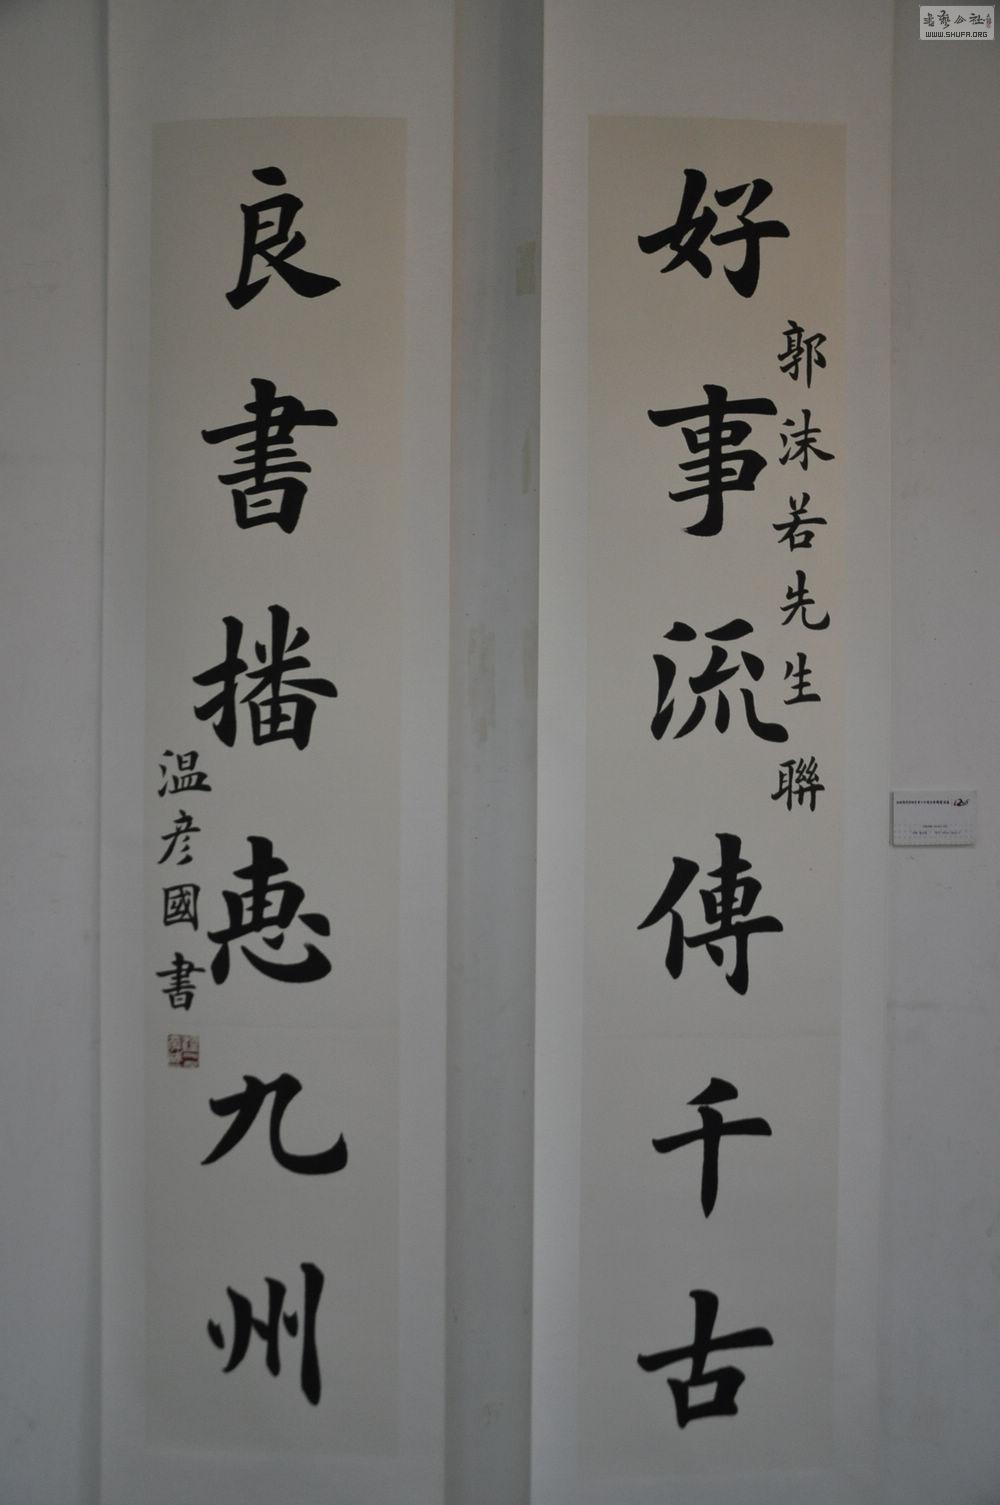 好事流傳千古
郭沫若先生聯
良書播惠九州
温彦國書
書藝公社
WWW.SHUFA.ORG